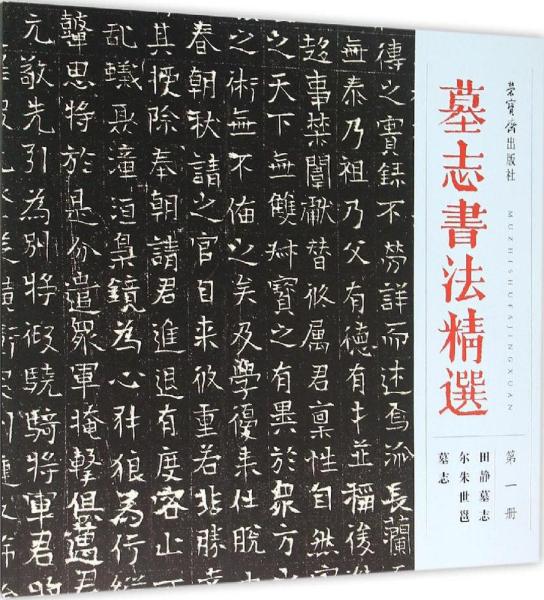 榮寶齋出版社
MUZHISHUFAJINGXUAN
墓志書法精選
第一册
田静墓志
尔朱世邕
墓志
傳之實録不勞詳而述焉派長蘭
無泰乃祖乃父有德有才並稱後
趍事禁闈獻替攸属君禀性自然
之天下無雙州寶之有異於眾方
之術無不備之矣及學優来仕脱
春朝狀請之官自来彼重若非勝
其授除奉朝請君進退有度容止
乱蟻聚潼洹梟鏡為心犲狼為行
思將於是分遣眾軍掩擊俱邁君
元敬先引為別將假驍騎將軍君